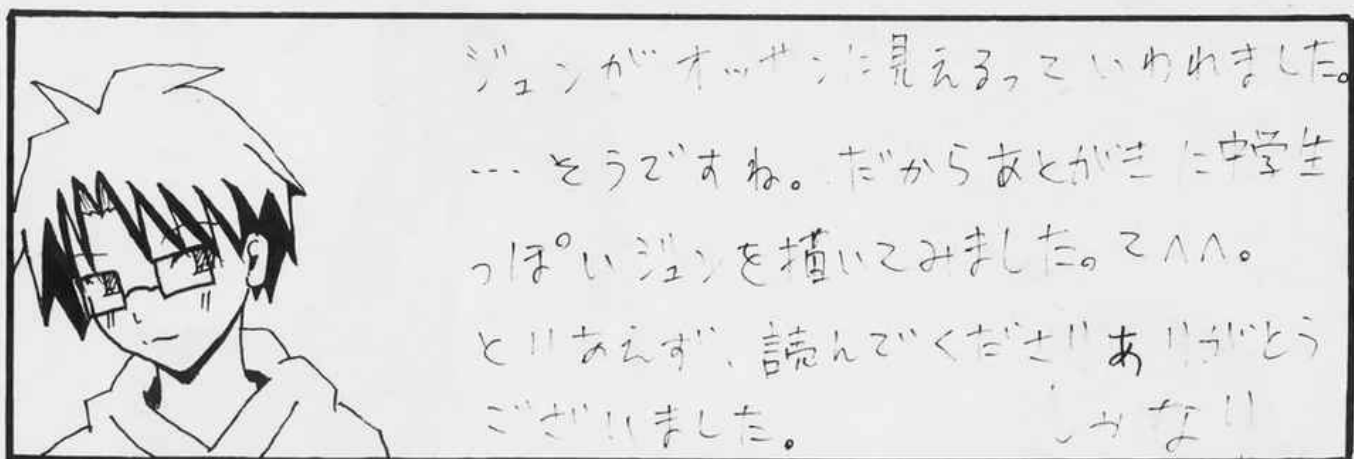 ジュンがオッサンに見えるっていわれました。
…そうですね。だからあとがきに中学生
っぽいジュンを描いてみました。て^^。
とりあえず、読んでくださりありがとう
ございました。 しかなり